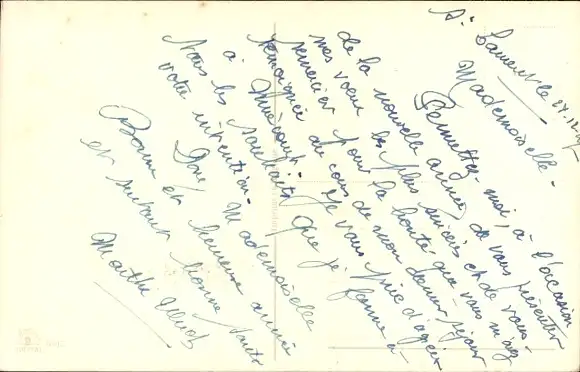 Mademoiselle.
Permettez-moi, à l'occasion
de la nouvelle année, de vous présenter
mes voeux les plus sincères et de vous
remercier pour la bonté que vous m'avez
témoignée au cours de mon dernier séjour
à Mirécourt. Je vous prie d'agréer
les souhaits que je forme à
votre intention.
Donc Mademoiselle
Bonne et heureuse année
et surtout bonne santé
Marthe